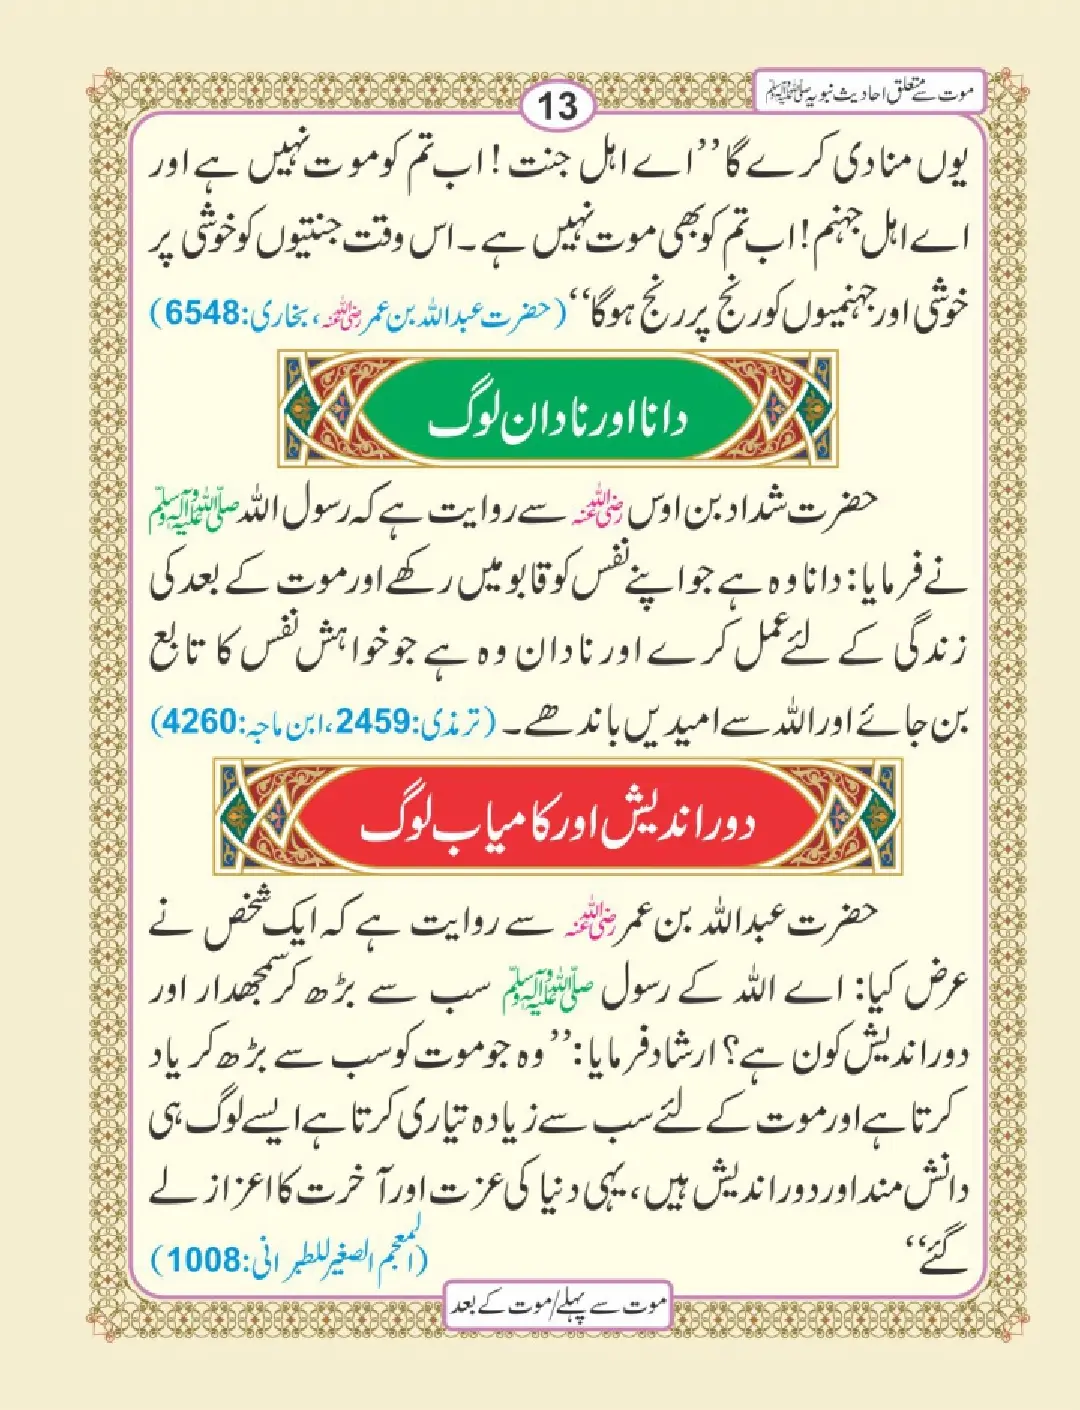 موت سے متعلق احادیث نبویہ ﷺ
13
یوں منادی کرے گا ’’اے اہل جنت! اب تم کو موت نہیں ہے اور
اے اہل جہنم! اب تم کو بھی موت نہیں ہے۔ اس وقت جنتیوں کو خوشی پر
خوشی اور جہنمیوں کو رنج پر رنج ہوگا‘‘ (حضرت عبداللہ بن عمر رضی اللہ عنہ، بخاری: 6548)
دانا اور نادان لوگ
حضرت شداد بن اوس رضی اللہ عنہ سے روایت ہے کہ رسول اللہ ﷺ
نے فرمایا: دانا وہ ہے جو اپنے نفس کو قابو میں رکھے اور موت کے بعد کی
زندگی کے لئے عمل کرے اور نادان وہ ہے جو خواہش نفس کا تابع
بن جائے اور اللہ سے امیدیں باندھے۔ (ترمذی: 2459، ابن ماجہ: 4260)
دور اندیش اور کامیاب لوگ
حضرت عبداللہ بن عمر رضی اللہ عنہ سے روایت ہے کہ ایک شخص نے
عرض کیا: اے اللہ کے رسول ﷺ سب سے بڑھ کر سمجھدار اور
دور اندیش کون ہے؟ ارشاد فرمایا: ’’وہ جو موت کو سب سے بڑھ کر یاد
کرتا ہے اور موت کے لئے سب سے زیادہ تیاری کرتا ہے ایسے لوگ ہی
دانش مند اور دور اندیش ہیں، یہی دنیا کی عزت اور آخرت کا اعزاز لے
گئے‘‘ (المعجم الصغیر للطبرانی: 1008)
موت سے پہلے/موت کے بعد